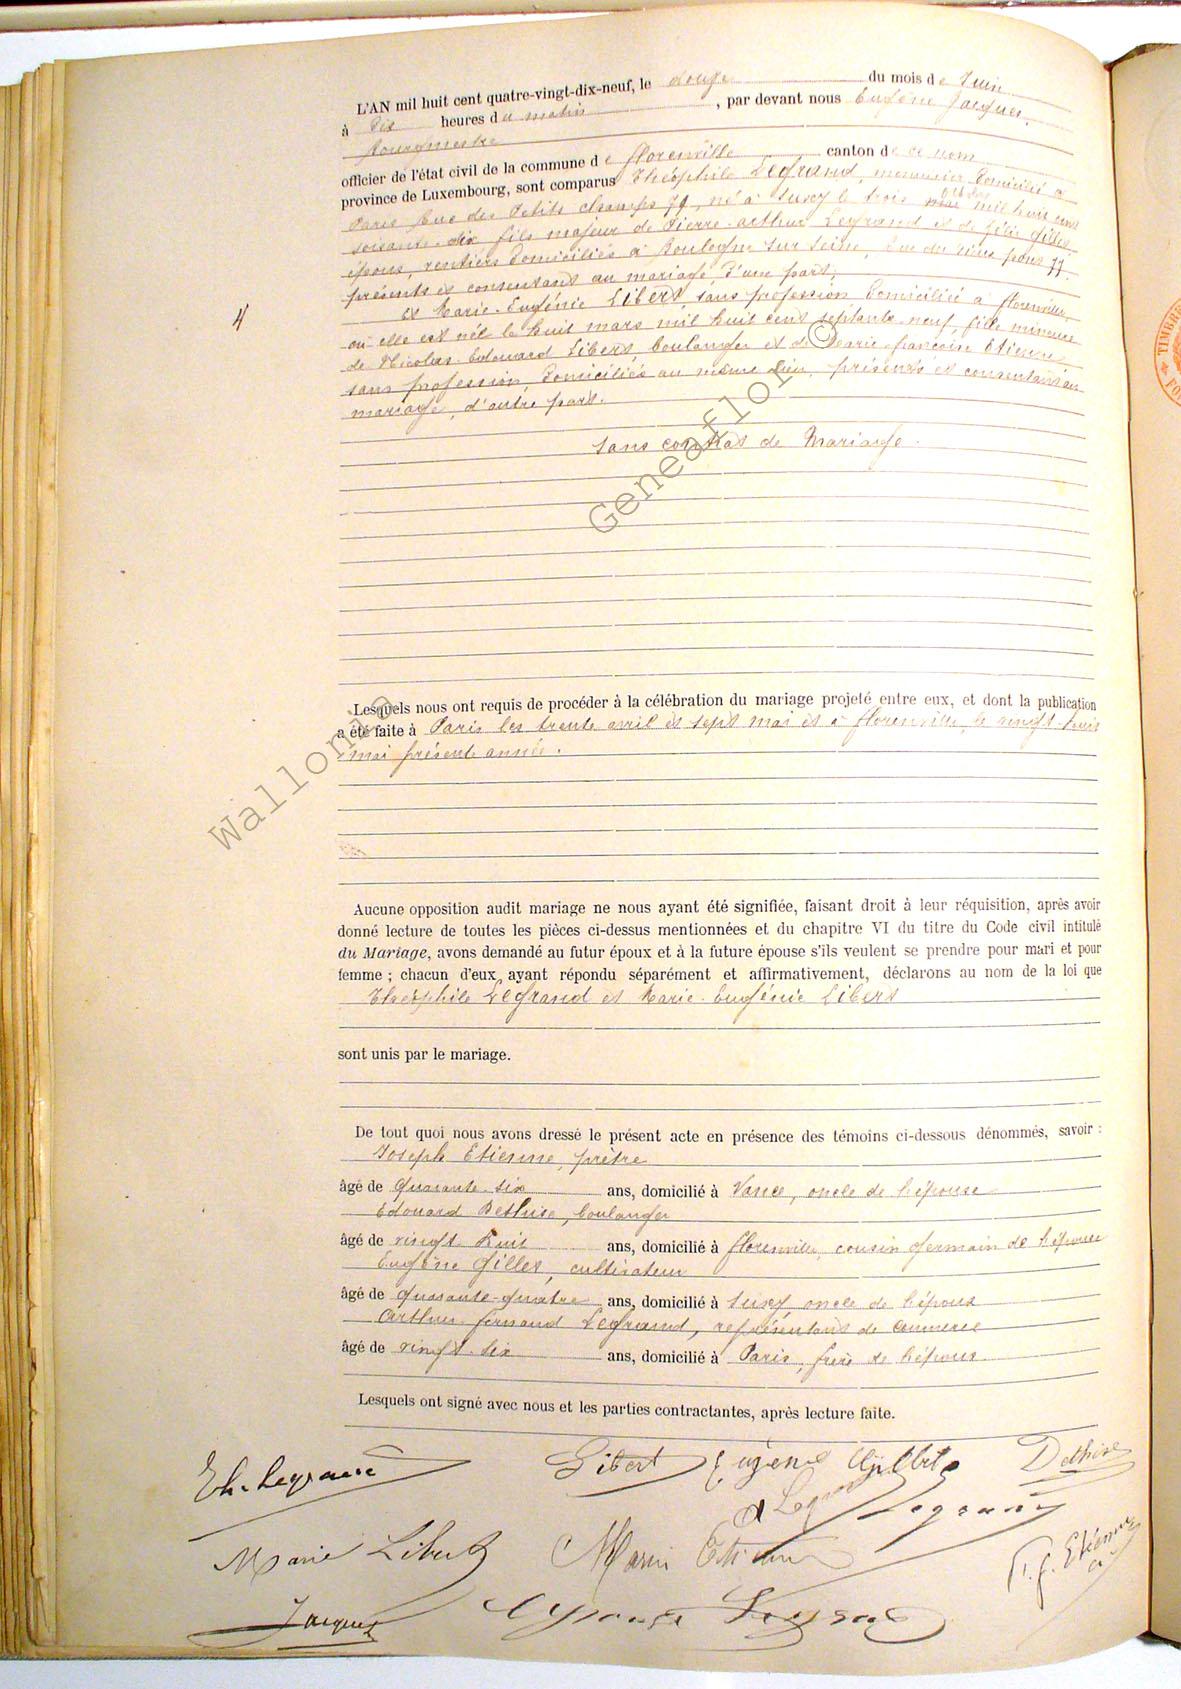 L'AN mil huit cent quatre-vingt-dix-neuf, le douze du mois de Juin
à dix heures du matin, par devant nous Eugène Jacques,
Bourgmestre
officier de l'état civil de la commune de Florenville canton de ce nom
province de Luxembourg, sont comparus Théophile Legrand, domicilié à
Paris Rue des Petits champs 79, né à Suxy le trois mai mil huit cent
soixante-dix fils majeur de Pierre-Arthur Legrand et de Félicie Gilles,
époux, rentiers domiciliés à Boulogne sur Seine, Rue des 77
présents et consentants au mariage, d'une part;
4
et Marie-Eugénie Libert, sans profession domiciliée à Florenville,
où elle est née le huit mars mil huit cent septante-neuf, fille mineure
de Nicolas-Edouard Libert, boulanger et de Marie-Françoise Etienne
sans profession, domiciliés au même lieu, présents et consentants au
mariage, d'autre part.
Sans contrat de Mariage.
Lesquels nous ont requis de procéder à la célébration du mariage projeté entre eux, et dont la publication
a été faite à Paris les trente avril et sept mai et à Florenville, le vingt-huit
mai présente année.
Aucune opposition audit mariage ne nous ayant été signifiée, faisant droit à leur réquisition, après avoir
donné lecture de toutes les pièces ci-dessus mentionnées et du chapitre VI du titre du Code civil intitulé
du Mariage, avons demandé au futur époux et à la future épouse s'ils veulent se prendre pour mari et pour
femme ; chacun d'eux ayant répondu séparément et affirmativement, déclarons au nom de la loi que
Théophile Legrand et Marie-Eugénie Libert
sont unis par le mariage.
De tout quoi nous avons dressé le présent acte en présence des témoins ci-dessous dénommés, savoir :
Joseph Etienne, prêtre
âgé de quarante-six ans, domicilié à Vance, oncle de l'épouse
Edouard Dethise, boulanger
âgé de vingt huit ans, domicilié à Florenville, cousin germain de l'épouse
Eugène Gilles, cultivateur
âgé de quarante-quatre ans, domicilié à Suxy, oncle de l'époux
Arthur Fernand Legrand, représentant de commerce
âgé de vingt-six ans, domicilié à Paris, frère de l'époux
Lesquels ont signé avec nous et les parties contractantes, après lecture faite.
Th. Legrand Libert Eugène Dethise
A Legrand Legrand
Marie Libert Marie Etienne J. Etienne
Jacques Legrand
Wallonia Geneaflor ©
TIMBRE